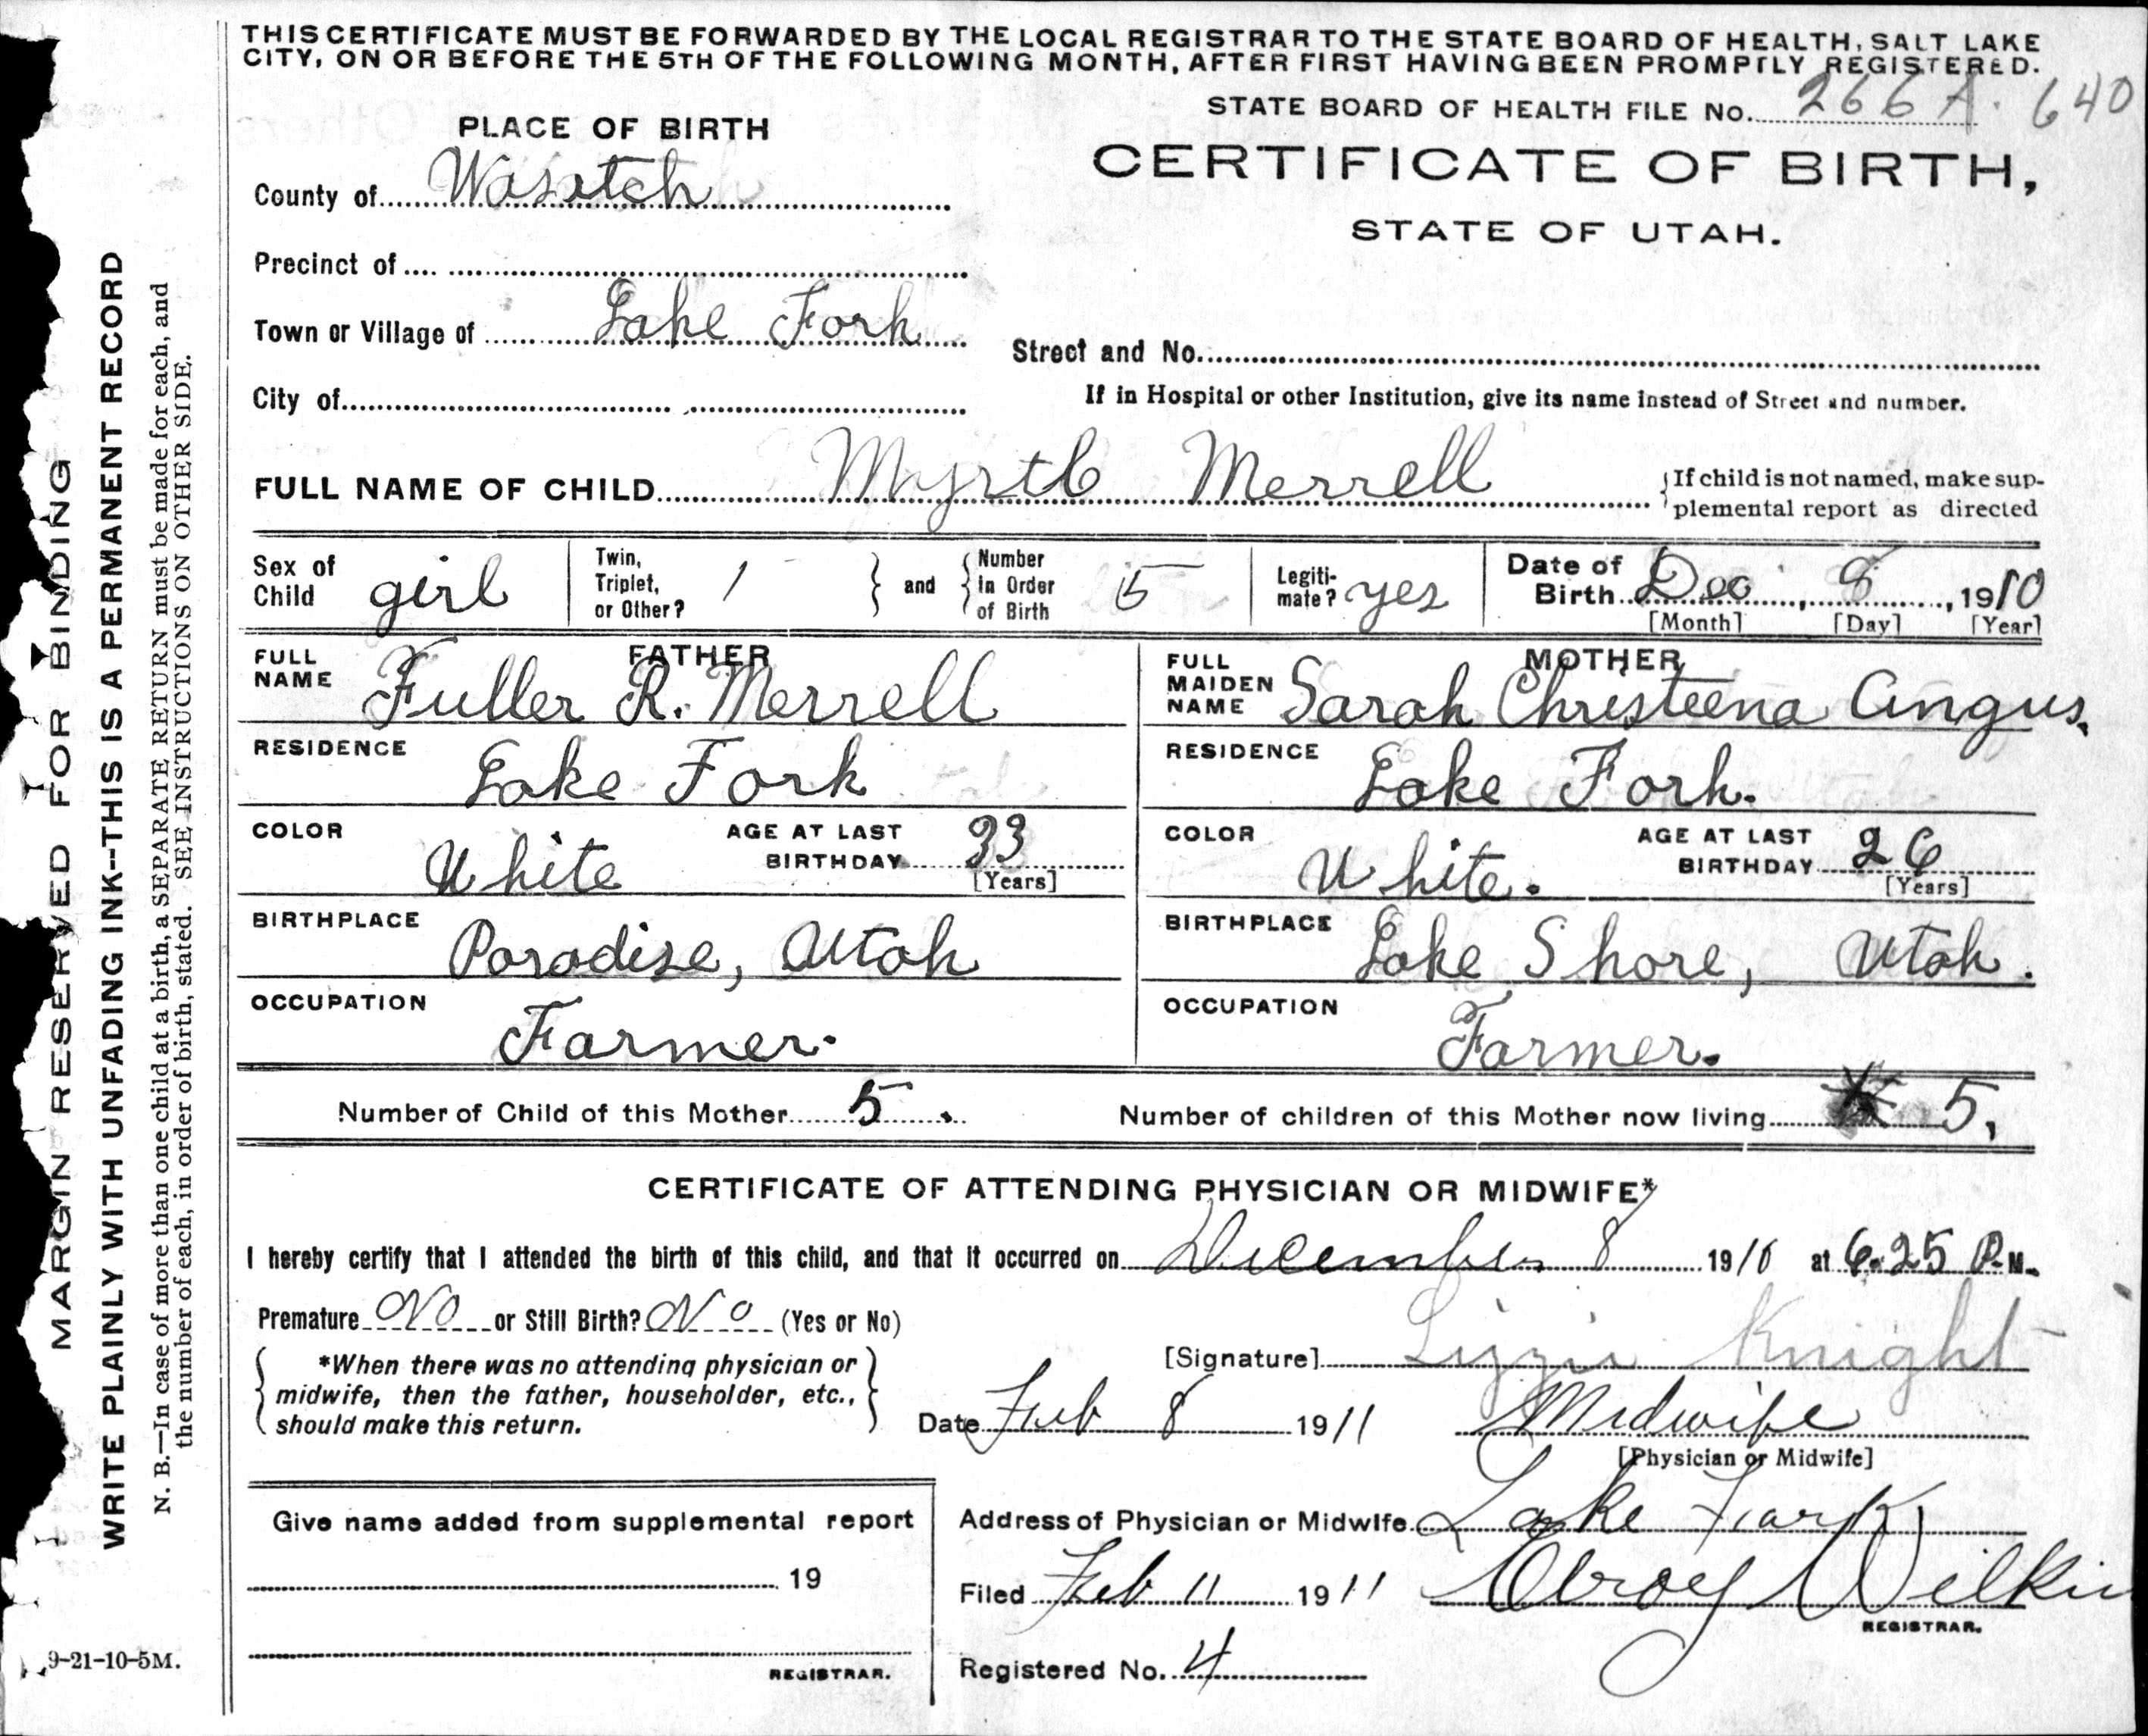 THIS CERTIFICATE MUST BE FORWARDED BY THE LOCAL REGISTRAR TO THE STATE BOARD OF HEALTH, SALT LAKE
CITY, ON OR BEFORE THE 5TH OF THE FOLLOWING MONTH, AFTER FIRST HAVING BEEN PROMPTLY REGISTERED.
STATE BOARD OF HEALTH FILE No. 266 A. 640
PLACE OF BIRTH
CERTIFICATE OF BIRTH,
STATE OF UTAH.
County of Wasatch
Precinct of
Town or Village of Lake Fork
Street and No.
City of
If in Hospital or other Institution, give its name instead of Street and number.
FULL NAME OF CHILD Myrtle Merrell
If child is not named, make sup-
plemental report as directed
Sex of Child girl
Twin, Triplet, or Other? 1
and
Number in Order of Birth 5
Legiti-mate? yes
Date of Birth Dec. 8, 1910
[Month] [Day] [Year]
FATHER
FULL NAME Fuller R. Merrell
RESIDENCE Lake Fork
COLOR White
AGE AT LAST BIRTHDAY 33
[Years]
BIRTHPLACE Paradise, Utah
OCCUPATION Farmer.
MOTHER
FULL MAIDEN NAME Sarah Christeena Angus.
RESIDENCE Lake Fork.
COLOR White.
AGE AT LAST BIRTHDAY 26
[Years]
BIRTHPLACE Lake Shore, Utah.
OCCUPATION Farmer.
Number of Child of this Mother 5.
Number of children of this Mother now living 5.
CERTIFICATE OF ATTENDING PHYSICIAN OR MIDWIFE*
I hereby certify that I attended the birth of this child, and that it occurred on December 8 1910 at 6.25 P.M.
Premature No or Still Birth? No (Yes or No)
*When there was no attending physician or
midwife, then the father, householder, etc.,
should make this return.
[Signature] Lizzie Knight
Date Feb 8 1911
Midwife
[Physician or Midwife]
Give name added from supplemental report
19
REGISTRAR.
Address of Physician or Midwife Lake Fork
Filed Feb 11 1911
Wilkin
REGISTRAR.
Registered No. 4
MARGIN RESERVED FOR BINDING
WRITE PLAINLY WITH UNFADING INK--THIS IS A PERMANENT RECORD
N. B.—In case of more than one child at a birth, a SEPARATE RETURN must be made for each, and
the number of each, in order of birth, stated. SEE INSTRUCTIONS ON OTHER SIDE.
9-21-10-5M.